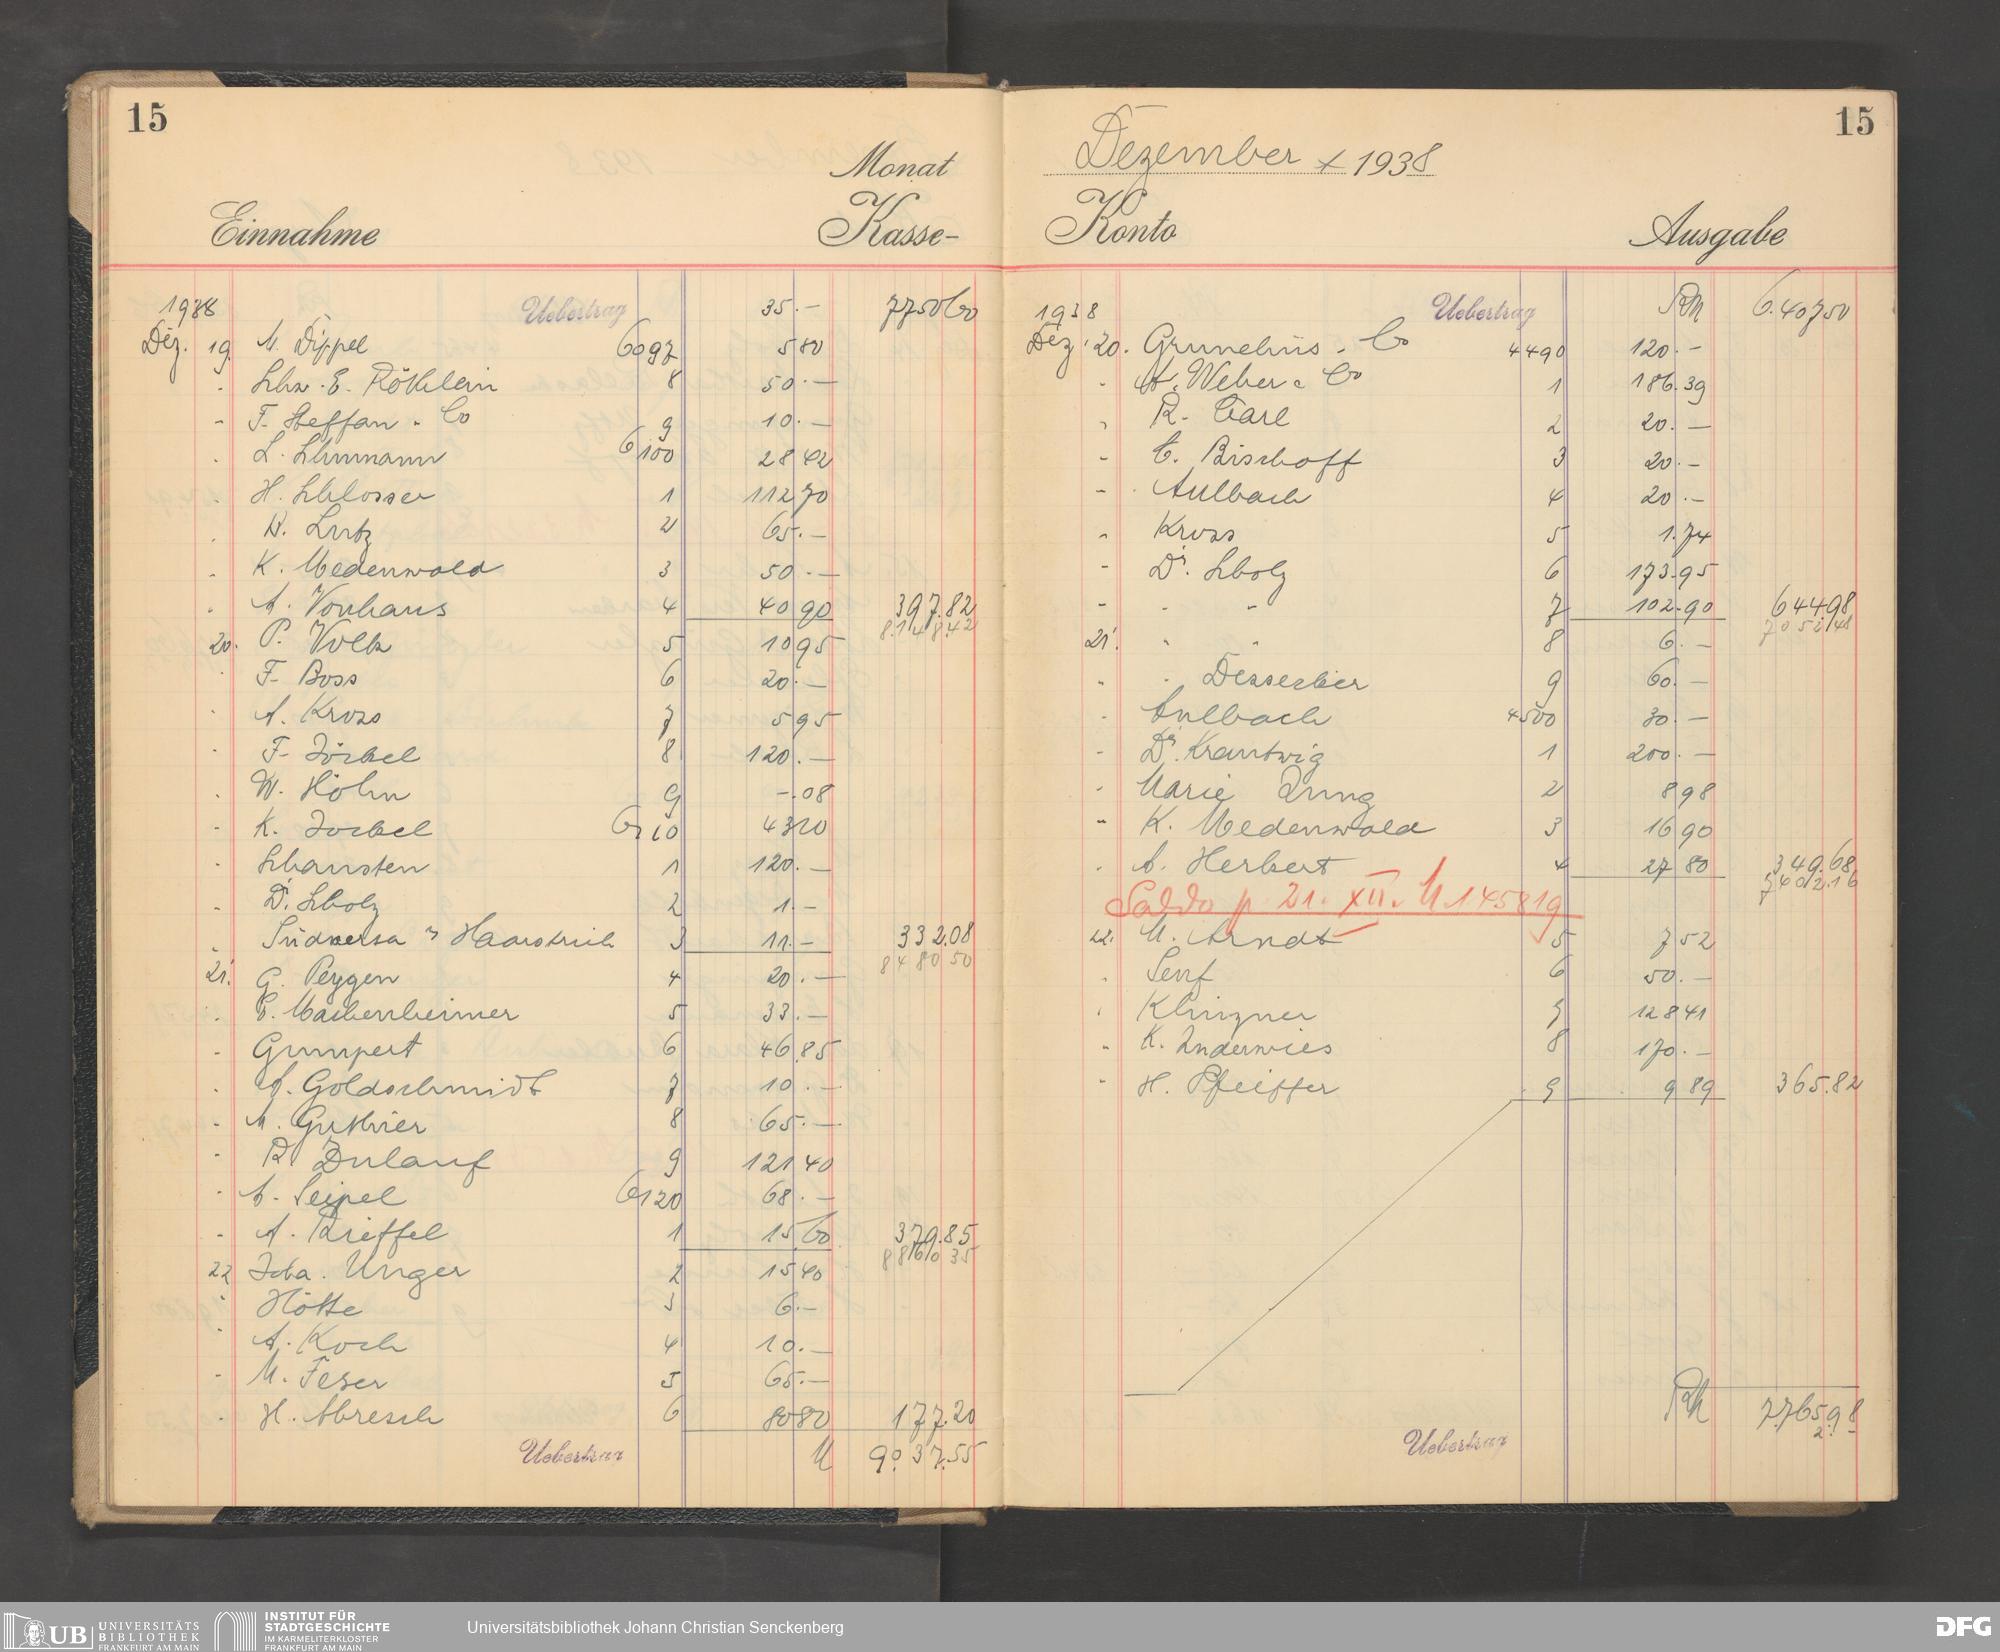 15
Monat
Einnahme Kasse-
1938 Uebertrag 35.- 7750 60
Dez. 19. A. Dippel 6097 5 80
- Schw. E. Röthlein 8 50.-
- F. Steffan & Co 9 10.-
- L. Schumann 6100 28 42
- H. Schlosser 1 112 70
- R. Lutz 2 65.-
- K. Medenwald 3 50.-
- A. Vonhaus 4 40 90 397.82
8.148.42
20. P. Volk 5 10 95
- F. Boss 6 20.-
- A. Kross 7 5 95
- F. Jöckel 8 120.-
- W. Höhn 9 -.08
- K. Jockel 6110 43 10
- Schausten 1 120.-
- Dr. Scholz 2 1.-
- Südwersa & Haarstrich 3 11.- 332.08
8480 50
21. G. Peygen 4 20.-
- Machenheimer 5 33.-
- Gumpert 6 46.85
- A. Goldschmidt 7 10.-
- M. Guthier 8 65.-
- R. Zulauf 9 121 40
- A. Seipel 6120 68.-
- A. Rieffel 1 15 60 379.85
8860 35
22 Joha. Unger 2 15 40
- Hötte 3 6.-
- A. Koch 4 10.-
- M. Feser 5 65.-
- H. Abresch 6 80 80 177.20
Uebertrag M 9037.55
15
Dezember 1938
Konto Ausgabe
1938 Uebertrag RM 6.407 50
Dez. 20. Grunelius & Co 4490 120.-
- A. Weber & Co 1 186.39
- R. Carl 2 20.-
- C. Bischoff 3 20.-
- Aulbach 4 20.-
- Kross 5 1.74
- Dr. Scholz 6 173.95
- " " 7 102.90 644.98
7052.48
21. " " 8 6.-
- " Desserbier 9 60.-
- Aulbach 4500 30.-
- Dr. Krautwig 1 200.-
- Marie Jung 2 8 98
- K. Medenwald 3 16 90
- A. Herbert 4 27 80 349.68
7402.16
Saldo p. 21. XII. M. 1458 19
22. M. Arndt 5 7 52
- Senf 6 50.-
- Klinzner 7 128 41
- K. Inderwies 8 170.-
- H. Pfeiffer 9 9 89 365.82
RM 7.765.98
Uebertrag
UB UNIVERSITÄTS
BIBLIOTHEK
FRANKFURT AM MAIN
INSTITUT FÜR
STADTGESCHICHTE
IM KARMELITERKLOSTER
FRANKFURT AM MAIN
Universitätsbibliothek Johann Christian Senckenberg
DFG